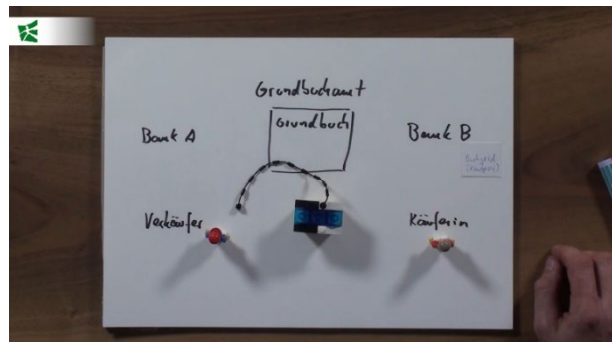 Grundbuchamt
Grundbuch
Bank A
Bank B
Verkäufer
Käuferin